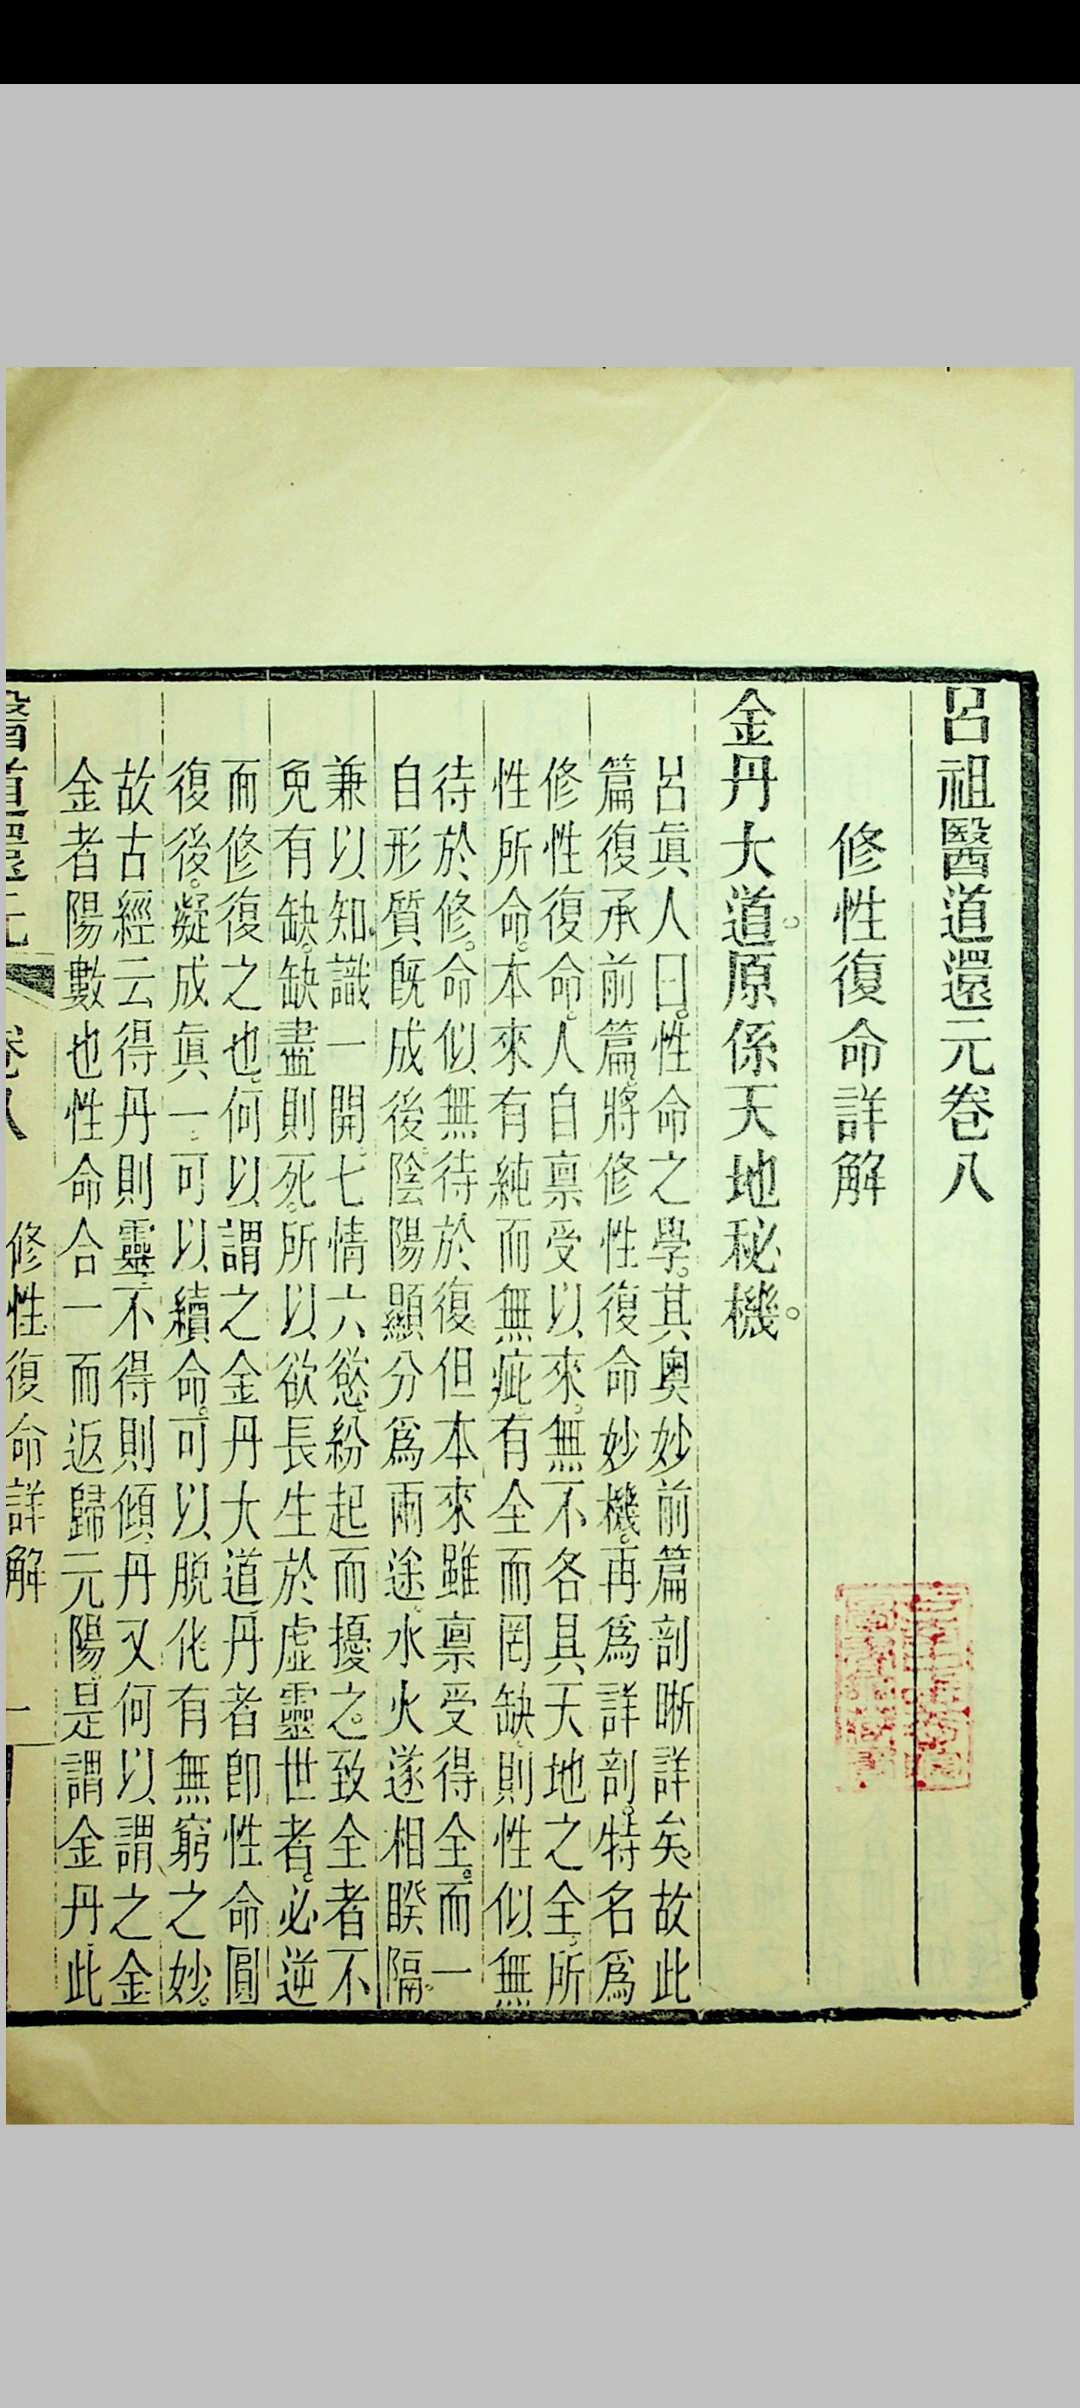 呂祖醫道還元卷八
修性復命詳解
金丹大道。原係天地秘機。
呂眞人曰。性命之學。其奧妙前篇剖晰詳矣。故此
篇復承前篇。將修性復命妙機。再爲詳剖。特名爲
修性復命。人自禀受以來。無不各具天地之全。所
性所命。本來有純而無疵。有全而罔缺。則性似無
待於修。命似無待於復。但本來雖禀受得全。而一
自形質既成後。陰陽顯分爲兩途。水火遂相睽隔。
兼以知識一開。七情六慾。紛起而擾之。致全者不
免有缺。缺盡則死。所以欲長生於虛靈世者。必逆
而修復之也。何以謂之金丹大道。丹者即性命圓
復後。凝成眞一。可以續命。可以脫化。有無窮之妙。
故古經云得丹則靈。不得則傾。丹又何以謂之金
金者陽數也性命合一而返歸元陽。是謂金丹。此
醫道還元 卷八 修性復命詳解 一